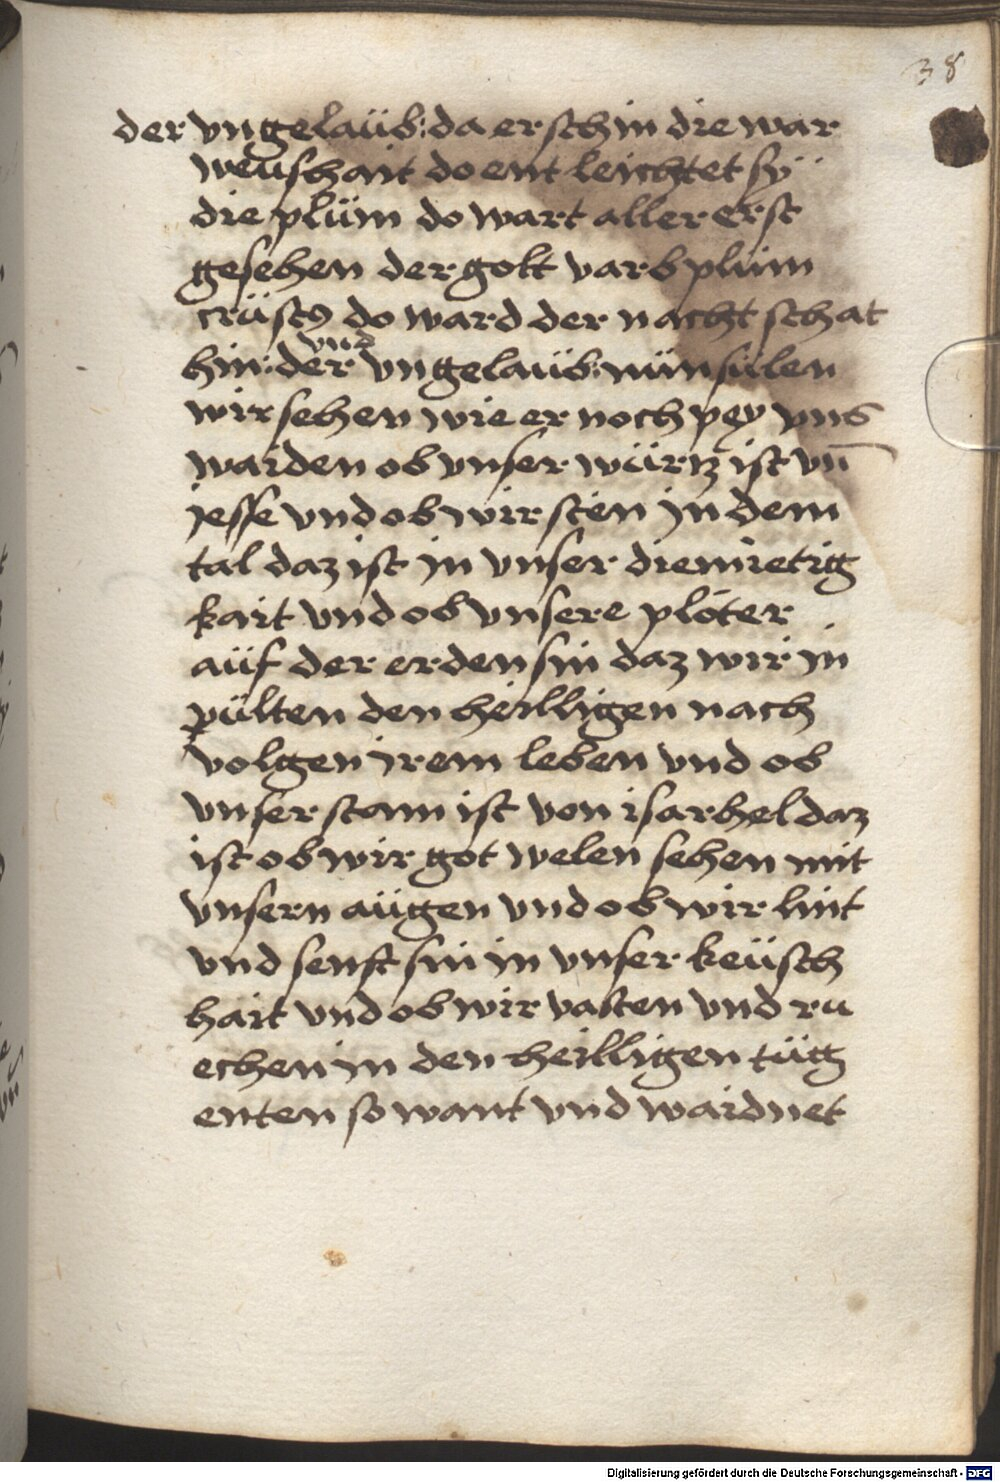 38
der vngelaüb: da er schin die war
weüshait do ent leichtet sÿ
die plüm do wart aller erst
gesehen der golt varb plüm
crüst9 do ward der nacht schat
hin: der vnd vngelaüb: nün sülen
wir sehen wie er noch peÿ vns
waiden ob vnser würtz ist vn̄
jesse vnd ob wir sten in dem
tal daz ist in vnser diemietig
kait vnd ob vnsere plöter
aüf der erden sin daz wir in
pülten den heilligen nach
volgen jrem leben vnd ob
vnser stam ist von isarhel daz
ist ob wir got welen sehen mit
vnsern aügen vnd ob wir lint
vnd senft sin in vnser keüsch
hait vnd ob wir vasten vnd ru
echen in den heilligen tüg
enten so want vnd waidnet
Digitalisierung gefördert durch die Deutsche Forschungsgemeinschaft - DFG